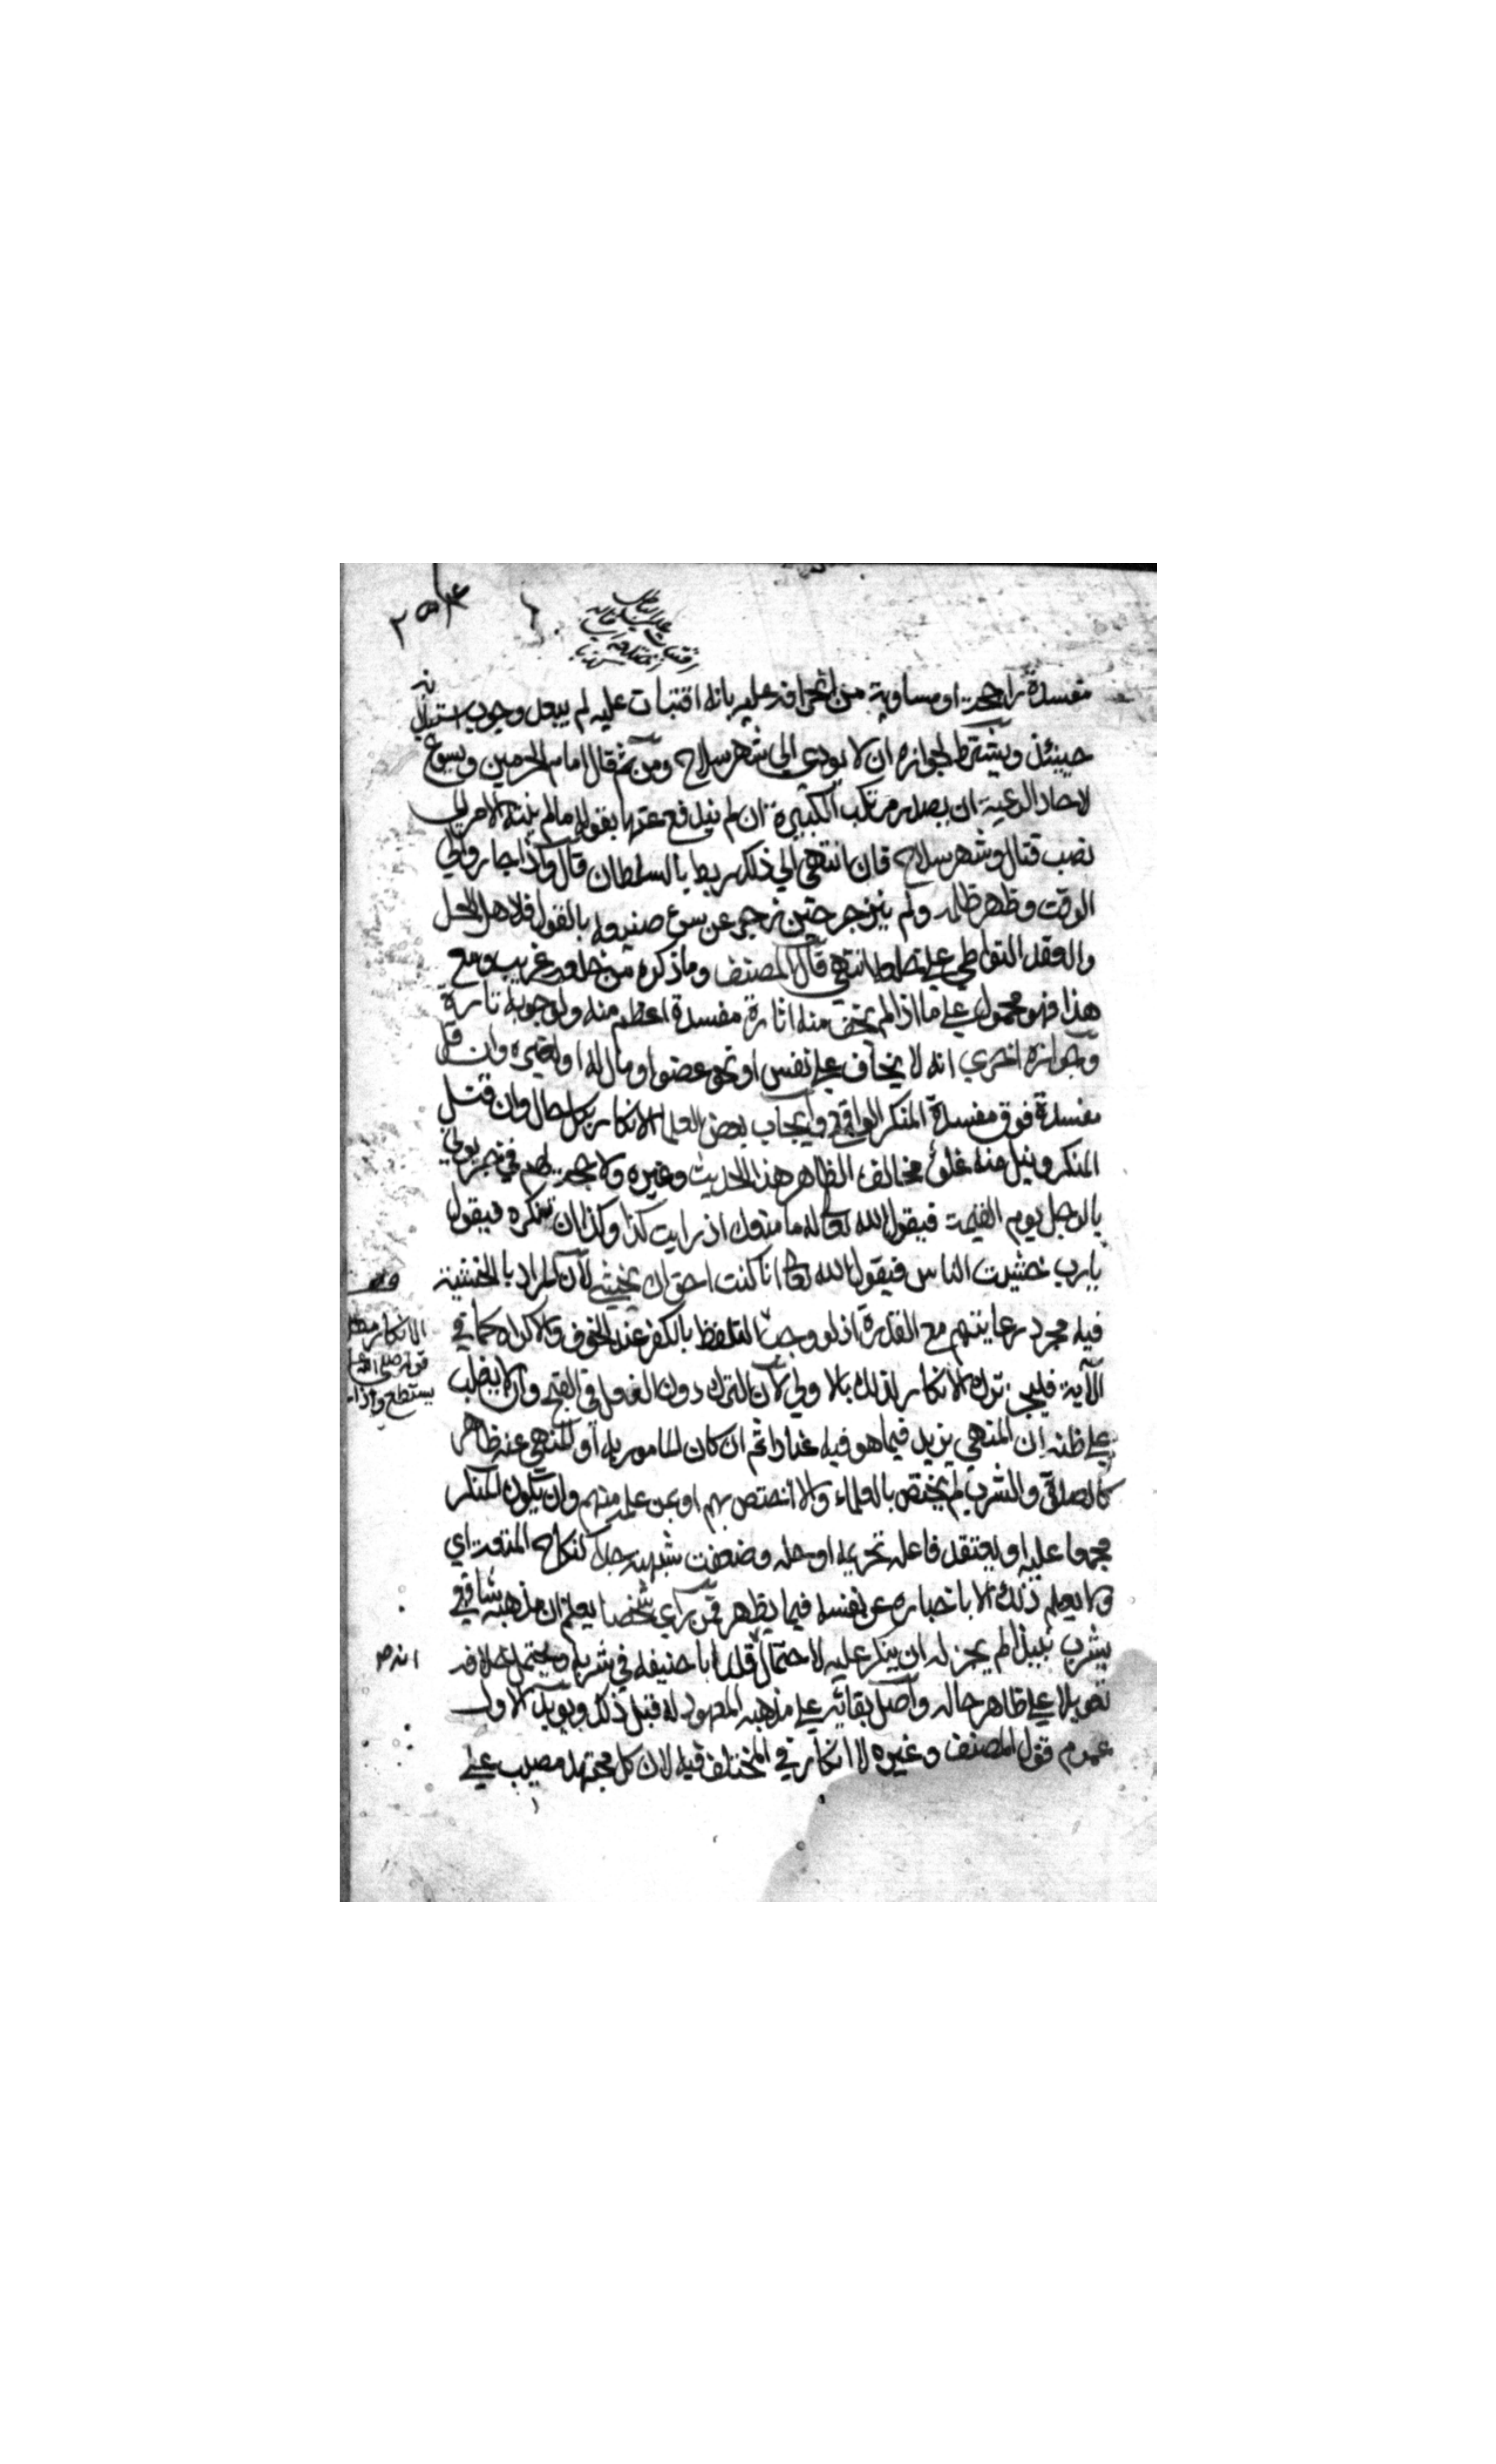 مفسدة راجحة او مساوية من انحرافه عليه بانه افتيات عليه لم يبعد وجوب استيذانه
حينئذ ويشترط لجوازه ان لا يودي الي شهر سلاح ومن ثم قال امام الحرمين ويسوغ
لاحاد الرعية ان يصد مرتكب الكبيرة ان لم يندفع عنها بقوله ما لم ينته الامر الي
نصب قتال وشهر سلاح فان انتهي الي ذلك ربط بالسلطان قال واذا جار والي
الوقت وظهر ظلمه ولم ينزجر حين زجر عن سوء صنيعه بالقول فلاهل الحل
والعقد التواطي علي خلعه انتهي قال المصنف وما ذكره من خلعه غريب ومع
هذا فهو محمول علي ما اذا لم يخف منه اثارة مفسدة اعظم منه ولوجوبه تارة
وجوازه اخري انه لا يخاف علي نفس او نحو عضو او مال له او لغيره وان قل
مفسدة فوق مفسدة المنكر الواقع وايجاب بعض العلما الانكار بكل حال وان قتل
المنكر ونيل منه غلو مخالف لظاهر هذا الحديث وغيره ولا حجة لهم في خبر يوتي
بالرجل يوم القيمة فيقول الله تعالي له ما منعك اذ رايت كذا وكذا ان تنكره فيقول
يا رب خشيت الناس فيقول الله تعالي انا كنت احق ان تخشي لان المراد بالخشية
فيه مجرد رعايتهم مع القدرة اذ لو وجب التلفظ بالكفر عند الخوف والاكراه كما في
الآية فليجز ترك الانكار لذلك بالاولي لان الترك دون الفعل في القبح وان لا يغلب
علي ظنه ان المنهي يزيد فيما هو فيه عنادا ثم ان كان المامور به او المنهي عنه ظاهر
كالصلاة والشرب لم يختص بالعلماء والا اختص بهم او بمن علمه منهم وان يكون المنكر
مجمعا عليه او يعتقد فاعله تحريمه او حله وضعفت شبهته جدا كنكاح المتعة اي
ولا يعلم ذلك الا باخباره عن نفسه فيما يظهر فمن راي شخصا يعلم ان مذهبه شافعي
يشرب نبيذا لم يجز له ان ينكر عليه لاحتمال قلد ابا حنيفه في شربه ويحتمل خلافه
تعويلا علي ظاهر حاله واصل بقائه علي مذهبه المعهود له قبل ذلك ويويد الاول
عموم قول المصنف وغيره لا انكار في المختلف فيه لان كل مجتهد مصيب علي
انه صح